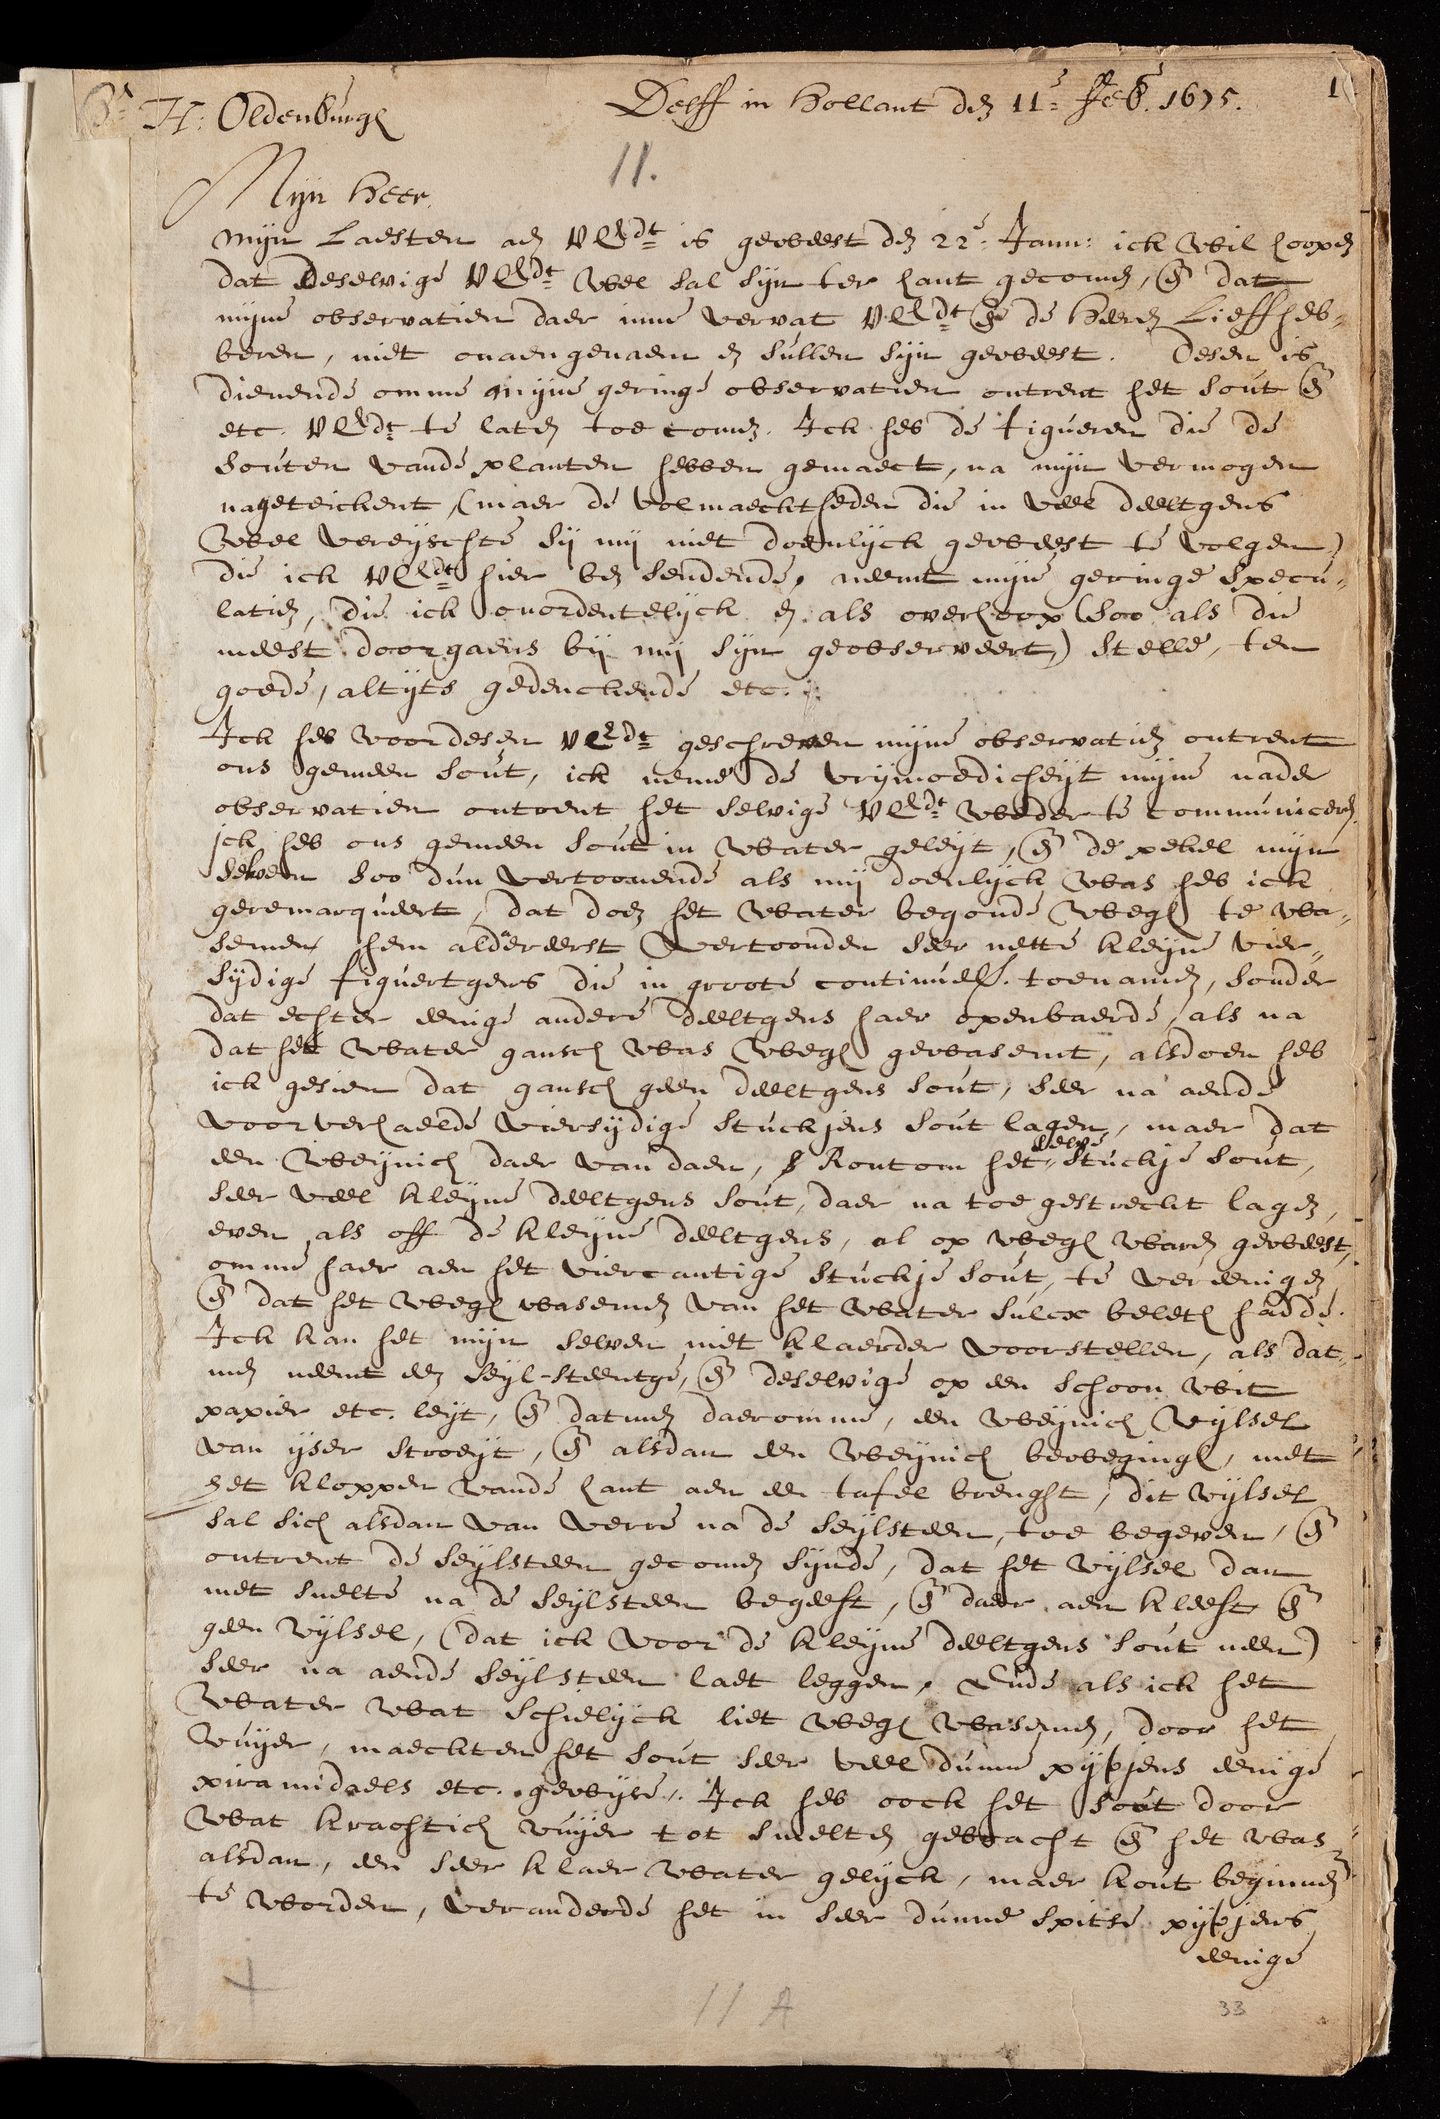 Sr H: Oldenburgh Delff in Hollant den 11e Feb. 1675. 1
11.
Mijn Heer.
Mijn Laesten aen VEEdt is geweest den 22e Janu: ick wil hoopen
dat deselvige VEEdt wel sal sijn ter hant gecomen, en dat
mijne observatien daer inne vervat VEEdt en de Heeren Lieffheb-
beren, niet onaengenaem en sullen sijn geweest. Desen is
dienende omme mijne geringe observatien ontrent het sout en
etc. VEEdt te laten toe comen. Ick heb de figueren die de
souten vande planten hebben gemaect, na mijn vermogen
nageteickent, (maer de volmaecktheden die in veel deeltgens
wel vereyschte sij mij niet doenlijck geweest te volgen)
die ick VEEdt hier ben sendende, neemt mijne geringe specu-
latien, die ick onordentelijck en als overhoop (soo als die
meest doorgaens bij mij sijn geobserveert) stelle, ten
goede, altijts gedenckende etc.
Ick heb voor desen VEEdt geschreven mijne observatien ontrent
ons gemeen sout, ick neme de vrijmoedicheyt mijne nader
observatien ontrent het selvige VEEdt weder te communiceren
ick heb ons gemeen sout in water geleyt, en de pekel mijn
selven soo dun vertoonende als mij doenlijck was heb ick
geremarqueert, dat doen het water begonde wegh te wa-
semen hem aldereerst vertoonden seer nette kleyne vier-
sydige figuertgens die in groote continuel. toenamen, sonder
dat echter eenige andere deeltgens haer openbaerde, als na
dat het water gansch was wegh gewasemt, alsdoen heb
ick gesien dat gansch geen deeltgens sout, seer na aende
voorverhaelde viersijdige stuckjens sout lagen, maer dat
een weynich daer van daen, Rontom het selve stuckje sout,
seer veel kleyne deeltgens sout, daer na toe gestreckt lagen,
even als off de kleyne deeltgens, al op wegh waren geweest,
omme haer aen het viercantige stuckje sout, te vereenigen
en dat het wegh wasemen van het water sulcx beleth hadde.
Ick kan het mijn selven niet klaerder voorstellen, als dat
men neemt een seyl-steentge, en deselvige op een schoon wit
papier etc. leyt, en datmen daeromme, een weynich vijlsel
van ijser stroeyt, en alsdan een weynich bewegingh, met
het kloppen vande hant aen een tafel brenght, dit vijlsel
sal sich alsdan van verre na de seylsteen, toe begeven, en
ontrent de seylsteen gecomen sijnde, dat het vijlsel dan
met snelte na de seylsteen begeeft, en daer aen kleeft en
geen vijlsel, (dat ick voor de kleyne deeltgens sout neem)
seer na aende seylsteen laet leggen. Ende als ick het
water wat schielijck liet wegh wasemen, door het
vuyer, maeckten het sout seer veel dunne pijpjens eenige
piramidaels etc. gewijse. Ick heb oock het sout door
wat krachtich vuyer tot smelten gebracht en het was
alsdan, een seer klaer water gelijck, maer kout beginnen
te worden, veranderde het in seer dunne spitse pijpjens
eenige
11 A
33